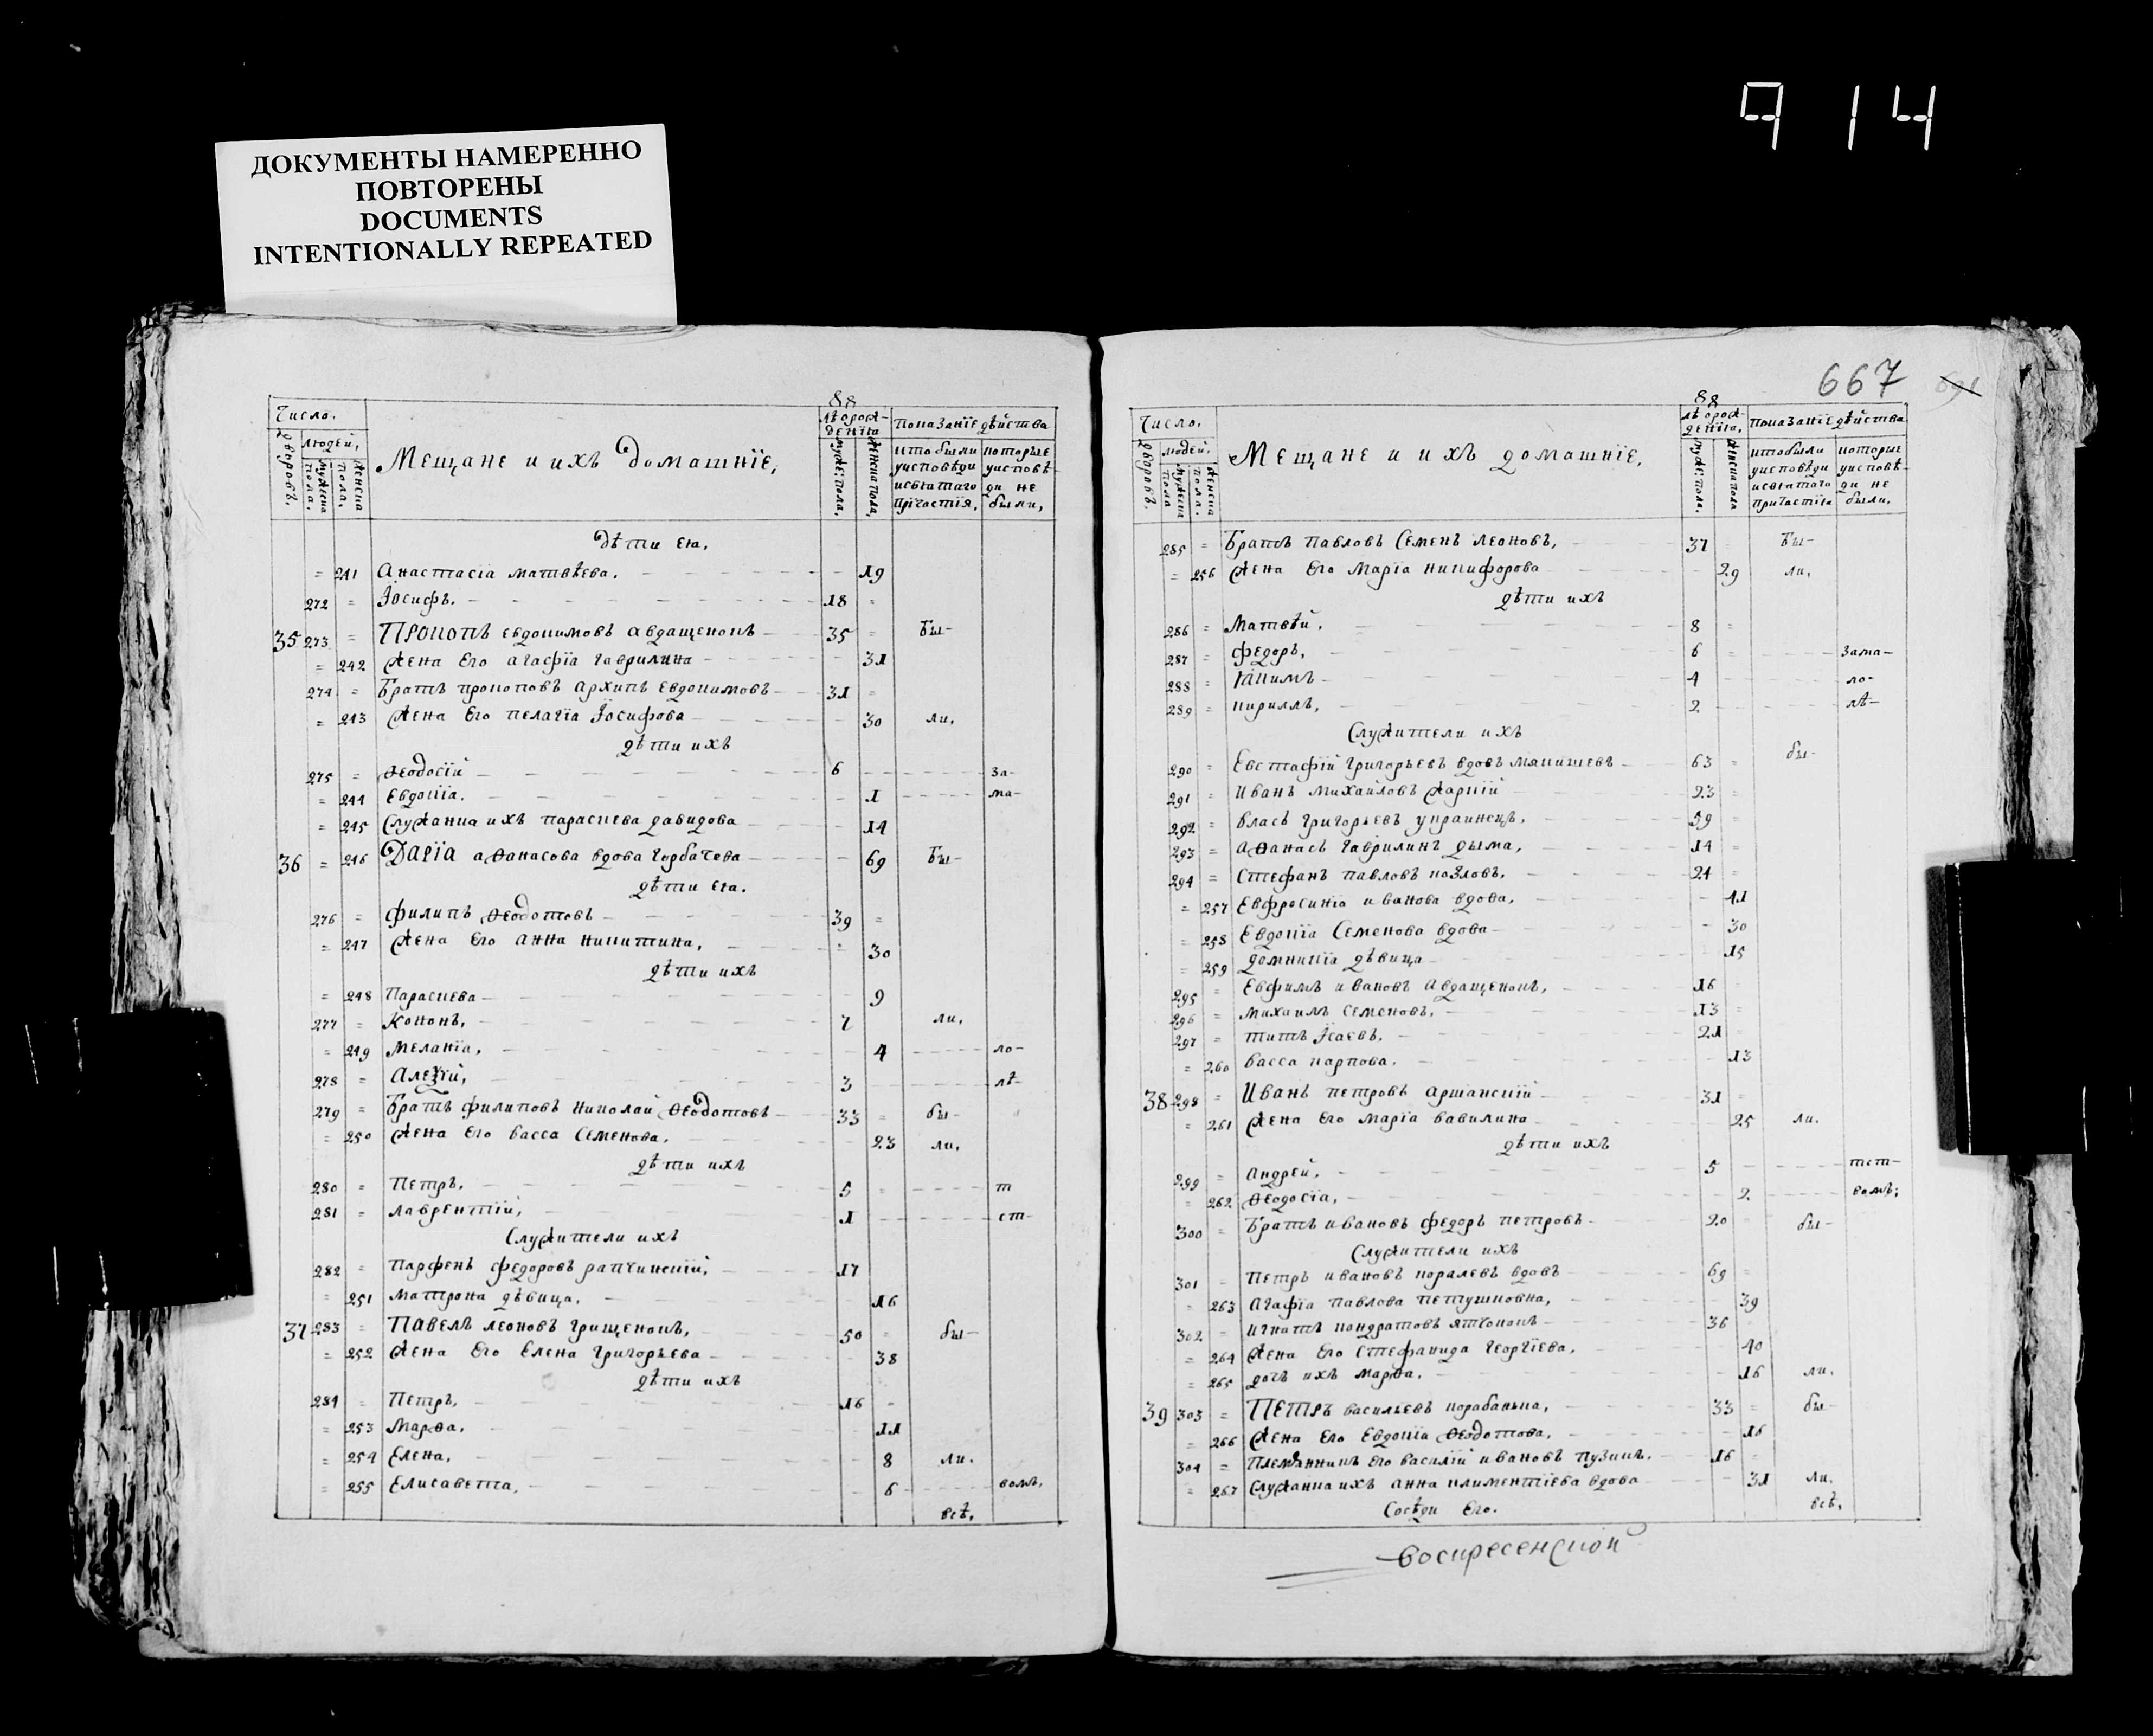 9 14
ДОКУМЕНТЫ НАМЕРЕННО
ПОВТОРЕНЫ
DOCUMENTS
INTENTIONALLY REPEATED
88
Число. Лѣ рож- Показаніе дѣйства
дворовъ. людей, мужеска пола. женска пола. Мещане и ихъ домашніе, денїя муже: пола. женска пола, кто были у исповѣди и святаго причастїя, которые у исповѣ- ди не были,
дѣти ея.
= 241 Анастасїа матвѣева. 19
272 = Іосифъ. 18 =
35 273 = Прокопъ евдокимовъ авдащенокъ 35 = Бы-
= 242 Жена его агафїа гаврилина 31
274 = Братъ прокоповъ архипъ евдокимовъ 31 =
= 243 Жена его пелагїа Іосифова 30 ли,
дѣти ихъ
275 = Ѳеодосїй 6 за-
= 244 Евдокїа. 1 ма-
= 245 Служанка ихъ параскева давидова 14
36 = 246 Дарїа аѳанасова вдова горбачева 69 Бы-
дѣти ея.
276 = филипъ Ѳеодотовъ 39 =
= 247 Жена его анна никитина, = 30
дѣти ихъ
= 248 Параскева 9
277 = Кононъ, 7 ли,
= 249 Меланїа, 4 ло-
278 = Алеѯїй, 3 лѣ-
279 = Братъ филиповъ николай Ѳеодотовъ 33 = бы-
= 250 Жена его васса Семенова. 23 ли,
дѣти ихъ
280 = Петръ. 5 = т
281 = лаврентїй, 1 ст-
Служители ихъ
282 = Парфенъ федоровъ рапчинскїй, 17
= 251 матрона дѣвица. 16
37 283 = Павелъ леоновъ грищенокъ, 50 = бы-
= 252 Жена его Елена григорьева 38
дѣти ихъ
284 = Петръ. 16 =
= 253 Марѳа. 11
= 254 Елена, 8 ли.
= 255 Елисавета, 6 вомъ,
всѣ,
667
88
Число. Лѣ рож- Показанїе дѣйства
дворовъ. людей, мужеска пола женска пола. Мещане и ихъ домашнїе, денїя, муже: пола. женска пола кто были у исповѣди и святаго причастїя которые у исповѣ- ди не были.
285 = Братъ павловъ Семенъ леоновъ, 37 = Бы-
= 256 Жена его Марїа никифорова 29 ли,
дѣти ихъ
286 = Матвѣй, 8 =
287 = федоръ, 6 = зама-
288 = Якимъ 4 ло-
289 = кириллъ, 2 лѣ-
Служители ихъ
290 = Евстафїй григорьевъ вдовъ мякишевъ 63 = бы-
291 = Иванъ михайловъ жаркїй 23 =
292 = власъ григорьевъ украинецъ, 59 =
293 = аѳанасъ гаврилинъ дыма, 14 =
294 = Стефанъ павловъ козловъ, 24 =
= 257 Евфросинїа иванова вдова, 41
= 258 Евдокїа Семенова вдова 30
= 259 домникїа дѣвица 15
295 = Евфимъ ивановъ авдащенокъ, 16
296 = михаилъ Семеновъ, 13 =
297 = титъ Ісаевъ. 21
= 260 васса карпова. 13
38 298 = Иванъ петровъ аршанскїй 31
= 261 Жена его марїа вавилина 25 ли.
дѣти ихъ
299 = андрей. 5 тст-
= 262 Ѳеодосїа, 2 вомъ;
300 = Братъ ивановъ федоръ петровъ 20 бы-
Служители ихъ
301 = Петръ ивановъ королевъ вдовъ 69 =
= 263 агафїа павлова петушковна, 39
302 = игнатъ кондратовъ ятчонокъ 36
= 264 Жена его стефанида георгїева. 40
= 265 дочь ихъ марѳа. 16 ли.
39 303 = Петръ васильевъ корабанька, 33 = бы-
= 266 Жена его Евдокїа Ѳеодотова, 16
304 = Племянникъ его василїй ивановъ пузикъ. 16 =
= 267 Служанка ихъ анна климентїева вдова 31 ли.
Сосѣди его. всѣ,
воскресенской